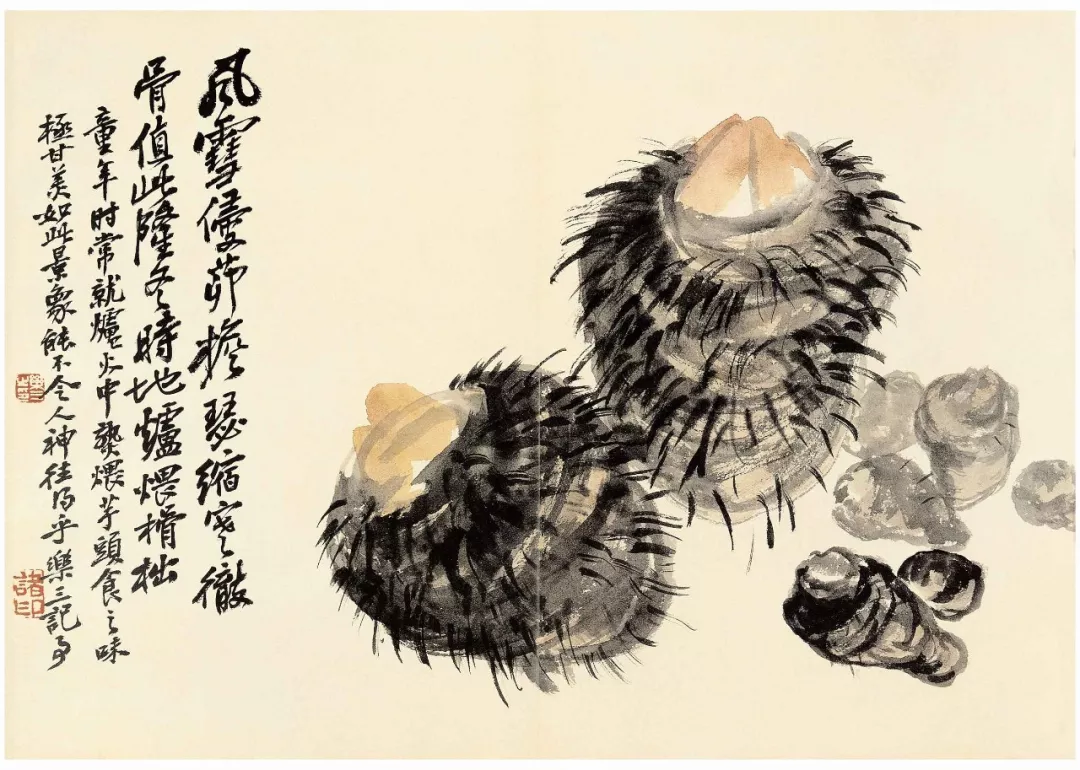 风雪侵茆檐瑟縮寒徹
骨值此隆冬時地爐煨榾柮
童年时常就爐火中煨芋頭食之味
極甘美如此景象能不令人神往乎樂三記
諸印